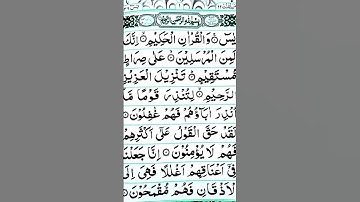 يٰسٓ ۚ وَالْقُرْاٰنِ الْحَكِيْمِ ۙ اِنَّكَ
لَمِنَ الْمُرْسَلِيْنَ ۙ عَلٰى صِرَاطٍ
مُّسْتَقِيْمٍ ۙ تَنْزِيْلَ الْعَزِيْزِ
الرَّحِيْمِ ۙ لِتُنْذِرَ قَوْمًا مَّاۤ
اُنْذِرَ اٰبَآؤُهُمْ فَهُمْ غٰفِلُوْنَ
لَقَدْ حَقَّ الْقَوْلُ عَلٰۤى اَكْثَرِهِمْ
فَهُمْ لَا يُؤْمِنُوْنَ اِنَّا جَعَلْنَا
فِيْۤ اَعْنَاقِهِمْ اَغْلٰلًا فَهِيَ اِلَى
الْاَذْقَانِ فَهُمْ مُّقْمَحُوْنَ